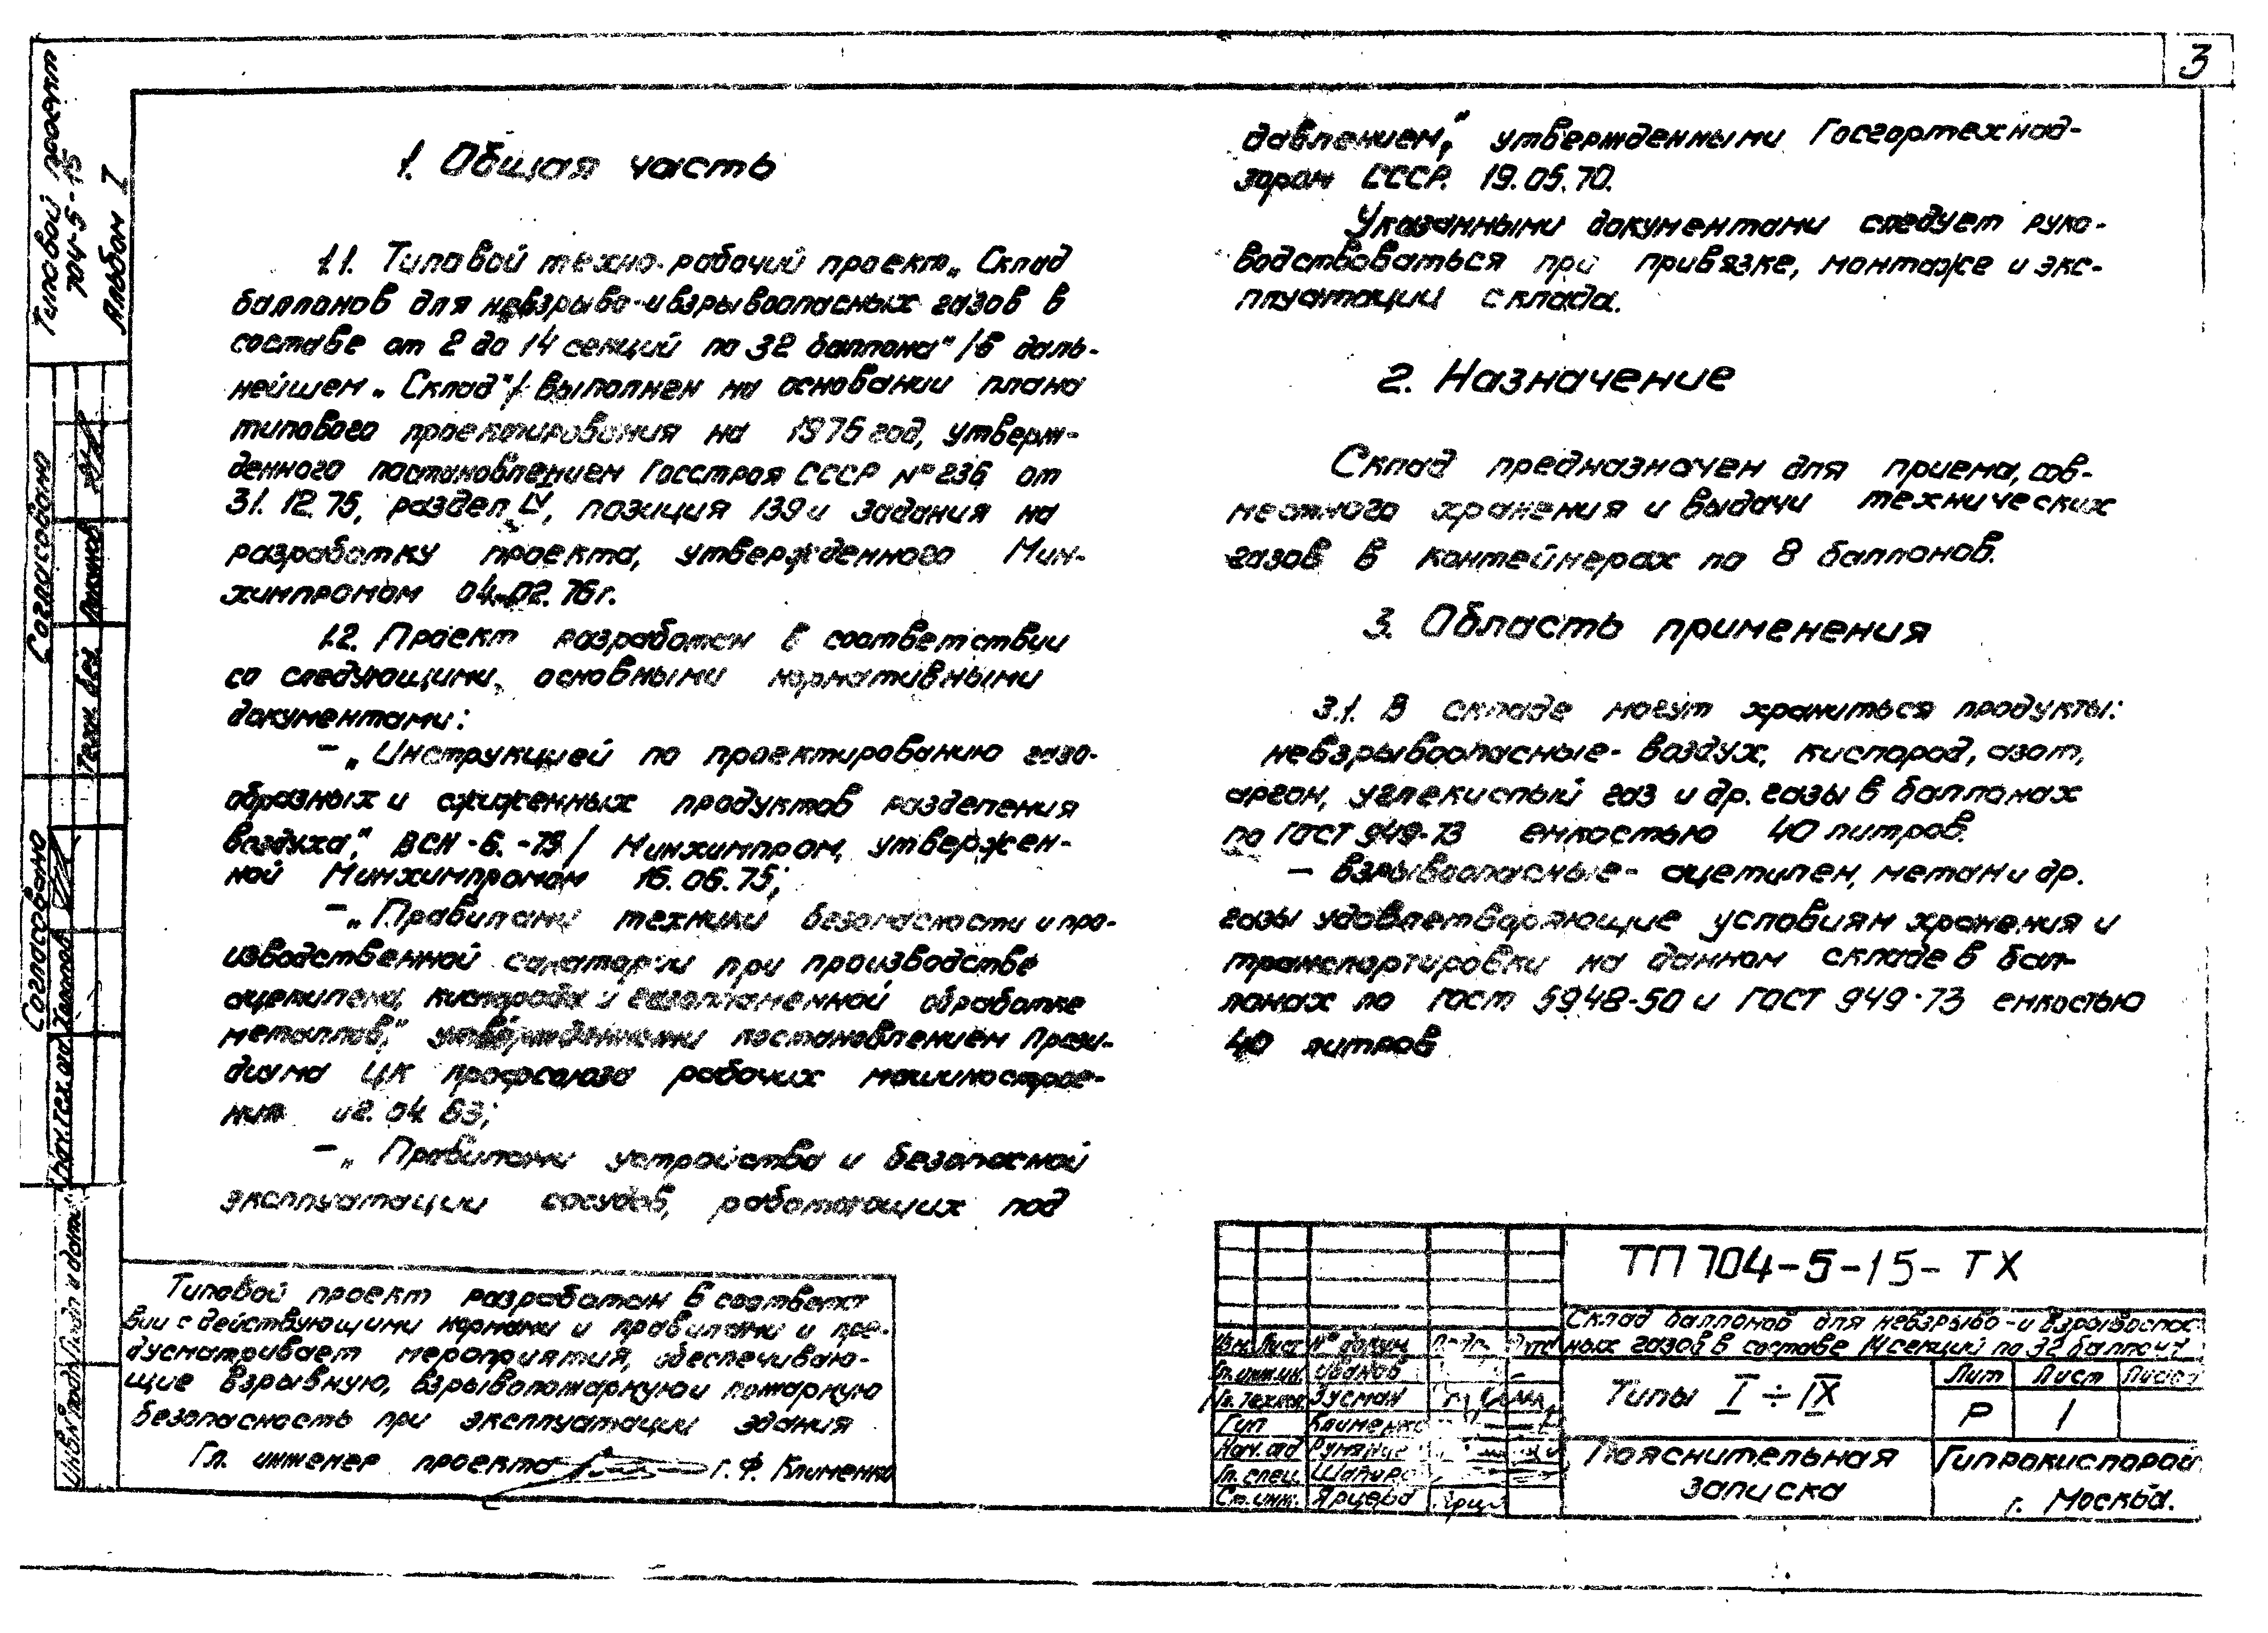 3
Типовой проект
704-5-15
Альбом I
1. Общая часть
1.1. Типовой техно-рабочий проект „Склад
баллонов для невзрыво-и взрывоопасных газов в
составе от 2 до 14 секций по 32 баллона" /в даль-
нейшем „Склад"/ выполнен на основании плана
типового проектирования на 1976 год, утверж-
денного постановлением Госстроя СССР № 236 от
31.12.75, раздел IV, позиция 139 и задания на
разработку проекта, утвержденного Мин-
химпромом 04.02.76г.
1.2. Проект разработан в соответствии
со следующими, основными нормативными
документами:
– „Инструкцией по проектированию газо-
образных и сжиженных продуктов разделения
воздуха", ВСН-6.-75/ Минхимпром, утвержен-
ной Минхимпромом 16.06.75;
– „Правилами техники безопасности и про-
изводственной санатории при производстве
ацетилена, кислорода и газопламенной обработке
металлов," утвержденными постановлением Прези-
диума ЦК профсоюза рабочих машинострое-
ния 02.04.63;
– „Правилами устройства и безопасной
эксплуатации сосудов, работающих под
давлением", утвержденными Госгортехнад-
зором СССР. 19.05.70.
Указанными документами следует руко-
водствоваться при привязке, монтаже и экс-
плуатации склада.
2. Назначение
Склад предназначен для приема, сов-
местного хранения и выдачи технических
газов в контейнерах по 8 баллонов.
3. Область применения
3.1. В складе могут храниться продукты:
невзрывоопасные- воздух, кислород, азот,
аргон, углекислый газ и др. газы в баллонах
по ГОСТ 949-73 емкостью 40 литров.
– взрывоопасные- ацетилен, метан и др.
газы удовлетворяющие условиям хранения и
транспортировки на данном складе в бал-
лонах по ГОСТ 5948-50 и ГОСТ 949-73 емкостью
40 литров
Типовой проект разработан в соответст
вии с действующими нормами и правилами и пре-
дусматривает мероприятия, обеспечиваю-
щие взрывную, взрывопожарную и пожарную
безопасность при эксплуатации здания
Гл. инженер проекта Г.Ф. Клименко
ТП 704-5-15-ТХ
Склад баллонов для невзрыво-и взрывоопас-
ных газов в составе 14 секций по 32 баллона
Изм. Лист № докум. Подп. Дата
Гл. инж.ин. Иванов
Гл. технол. Гусман
Гип Клименко
Нач. отд
Гл. спец. Шапиро
Ст. инж. Ярцева
Типы I ÷ IX
Лит Лист Листов
Р 1
Пояснительная
записка
Гипрокислород
г. Москва.
Согласовано
Техн. без.
Согласовано
Нач. тех. от.
Инв.№ подл. Подп. и дата